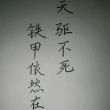 天驱不死
铁甲依然在